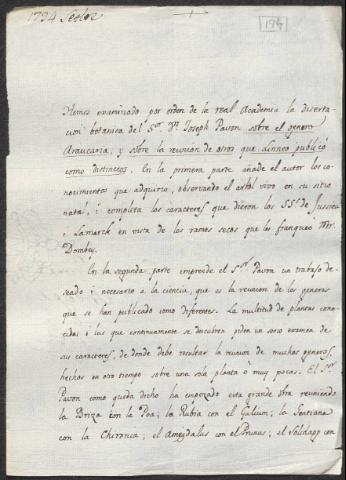 1794 Señor
194
Hemos examinado por orden de la real Academia la diserta-
cion botanica del S.or Dn Joseph Pavon sobre el genero
Araucaria, y sobre la reunion de otros que Linneo publicó
como distinctos. En la primera parte añade el autor los co-
nocimientos que adquirió, observando el arbol vivo en su sitio
natal, i completa los caracteres que dieron los SS.s de Jussieu
i Lamarck en vista de los ramos secos que les franqueó Mr.
Dombey.
En la segunda parte emprende el S.or Pavon un trabajo de-
seado i necesario a la ciencia, que es la reunion de los generos
que se han publicado como diferentes. La multitud de plantas cono-
cidas i las que continuamente se descubren piden un serio examen de
sus caracteres, de donde debe resultar la reunion de muchos generos,
hechos en otro tiempo sobre una sola planta ó muy pocas. El S.or
Pavon como queda dicho ha empezado esta grande obra reuniendo
la Briza con la Poa; la Rubia con el Galium; la Gentiana
con la Chironia; el Amygdalus con el Prunus; el Solidago con